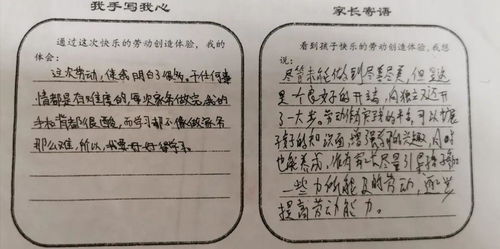 我手写我心
通过这次快乐的劳动创造体验，我的
体会：
这次劳动，使我明白了很多。干任何事
情都是有难度的，每次家务做完，我的
手和背都很酸，而学习却不像做家务
那么难，所以，我要好好学习。
家长寄语
看到孩子快乐的劳动创造体验，我想
说：
尽管未能做到尽善尽美，但这
是一个良好的开端，向独立又迈开
了一大步。劳动作为实践的平台，可以扩展
孩子的知识面，增强学习兴趣，同时
也能养成，
一些力所能及的劳动，逐步
提高劳动能力。